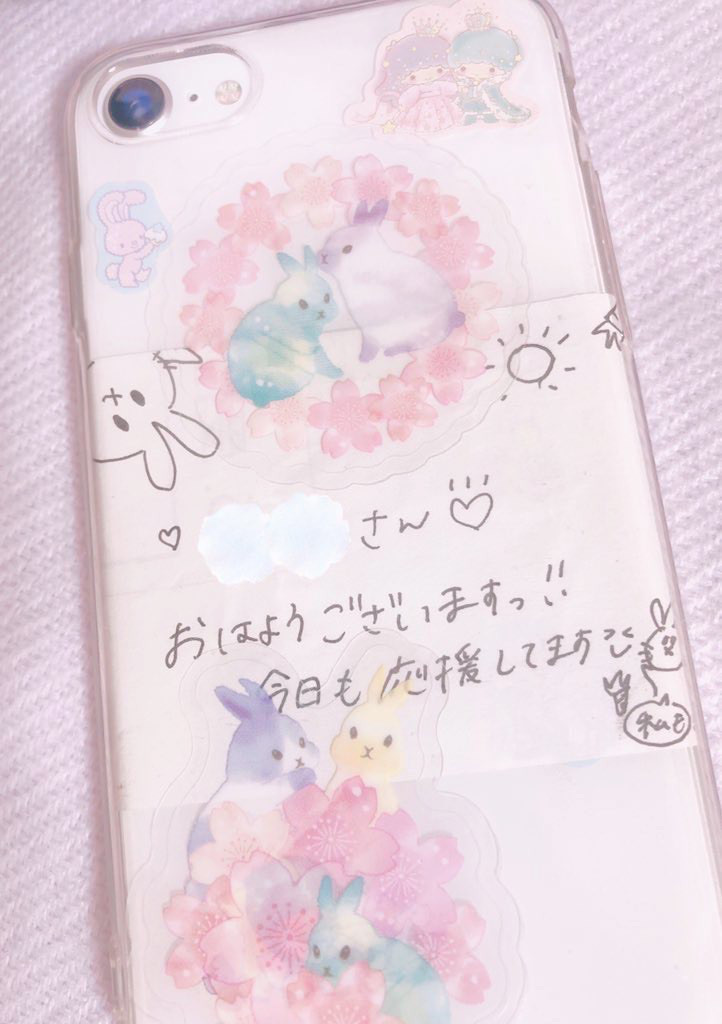 さん♡
おはようございますっ!!
今日も応援してます
私も